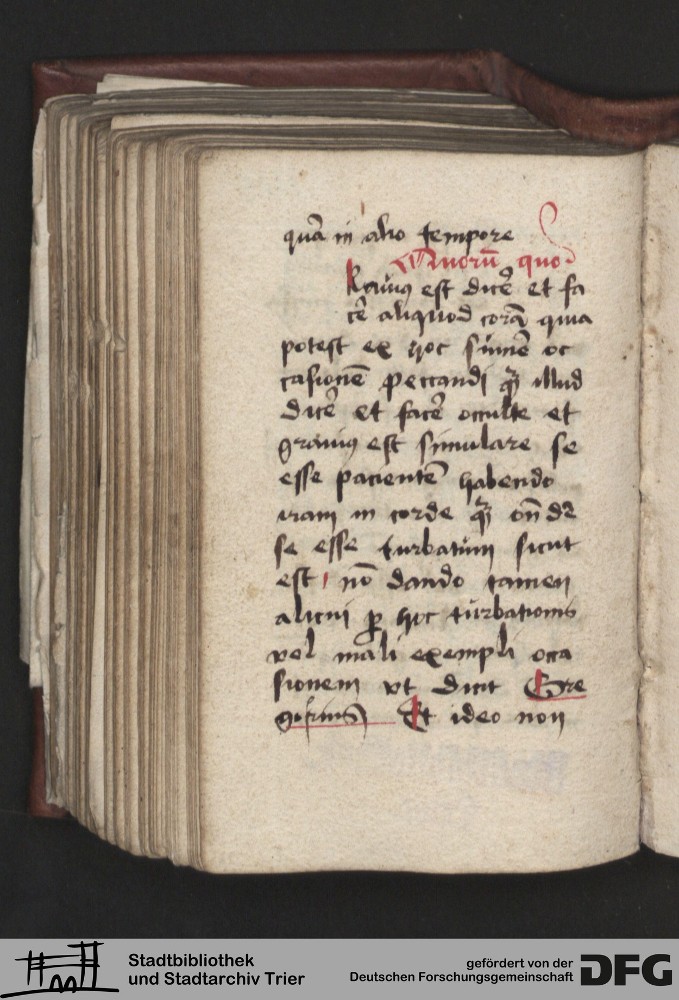 quā in alio tempore
quorū quod
Grauiꝰ est dicē et fa
cē aliquod corā quia
potest ex hoc sumē oc
casionē peccandi ꝙ̄ illud
dicē et facē occulte et
grauiꝰ est simulare se
esse pacientē habendo
iram in corde ꝙ̄ oñdē
se esse turbatum sicut
est nō dando tamen
alicui ꝑ hoc turbationis
vel mali exempli occa
sionem vt dicit Gre
gorius Et ideo non
Stadtbibliothek
und Stadtarchiv Trier
gefördert von der
Deutschen Forschungsgemeinschaft
DFG